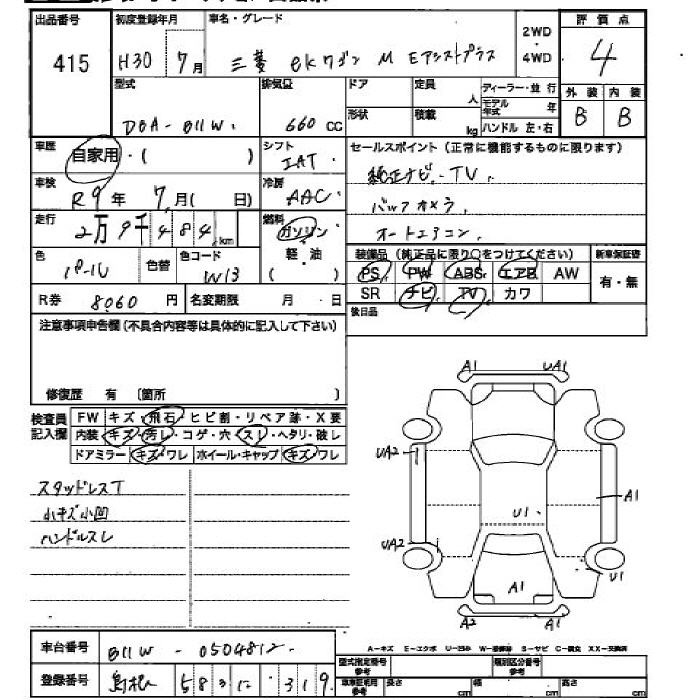 出品番号 初度登録年月 車名・グレード 2WD 評価点
415 H30 7月 三菱 ekワゴン M Eアシストプラス 4WD 4
型式 排気量 ドア 定員 人 ディーラー・並行 外装 内装
DBA-B11W. 660 cc 形状 積載 kg モデル年式 年 B B
ハンドル 左・右
車歴 自家用・( ) シフト IAT. セールスポイント (正常に機能するものに限ります)
車検 R9年 7月( 日) 冷房 AAC. 純正ナビ.TV.
走行 2万9千484km 燃料 ガソリン バックカメラ.
軽・油 オートエアコン.
色 パール 色替 色コード W13 ( ) 装備品 (純正品に限り○をつけてください) 新車保証書
PS PW ABS エアB AW 有・無
R券 8060円 名変期限 月・日 SR ナビ TV カワ
注意事項申告欄 (不具合内容等は具体的に記入して下さい) 後日品
修復歴 有 [箇所 ]
検査員記入欄 FW キズ・飛石・ヒビ割・リペア跡・X要
内装 キズ・汚レ・コゲ・穴・スレ・ヘタリ・破レ
ドアミラー キズ・ワレ ホイール・キャップ キズ・ワレ
A1 UA1
UA2 A1
U1.
UA2 U1
A1
A2 A1
スタッドレスT
小キズ小凹
ハンドルスレ
車台番号 B11W - 0504812.
A-キズ E-エクボ U-凹み W-補修跡 S-サビ C-腐食 XX-交換済
登録番号 島根 58 319
型式指定番号 参考 類別区分番号 参考
車車証記用 参考 長さ cm 幅 cm 高さ cm